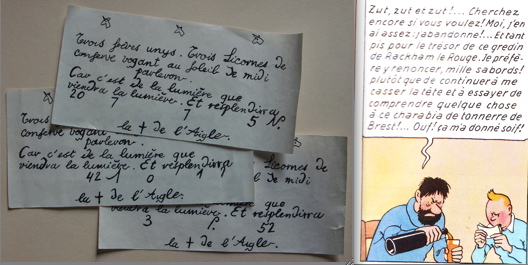 Trois frères unys. Trois Licornes de
conserve vogant au soleil de midi
parleron-
Car c'est de la lumière que
viendra la lumière. Et resplendira
20 7 7 5 N.
la + de l'Aigle.
Trois
conserve
parleron-
Car c'est de la lumière que
viendra la lumière. Et resplendira
42 1 0 1
la + de l'Aigle.
Licornes de
de midi
que
viendra la lumière. Et resplendira
3 52
la + de l'Aigle.
Zut, zut et zut!... Cherchez
encore si vous voulez! Moi, j'en
ai assez: j'abandonne!... Et tant
pis pour le trésor de ce gredin
de Rackham le Rouge. Je préfè-
re y renoncer, mille sabords!
plutôt que de continuer à me
casser la tête et à essayer de
comprendre quelque chose
à ce charabia de tonnerre de
Brest!... Ouf! ça m'a donné soif!